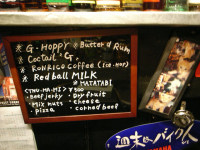 * G・HOPPY * Butterd Rum
* Coctail "G"
* RONRICO Coffee (ice・HOT)
* Red ball MILK
* MATATABI
<TNU-MA-MI> ¥500
・Beef jerky ・Dry fruit
・Mix nuts ・cheese
・pizza ・corned beef
週末はバイクで